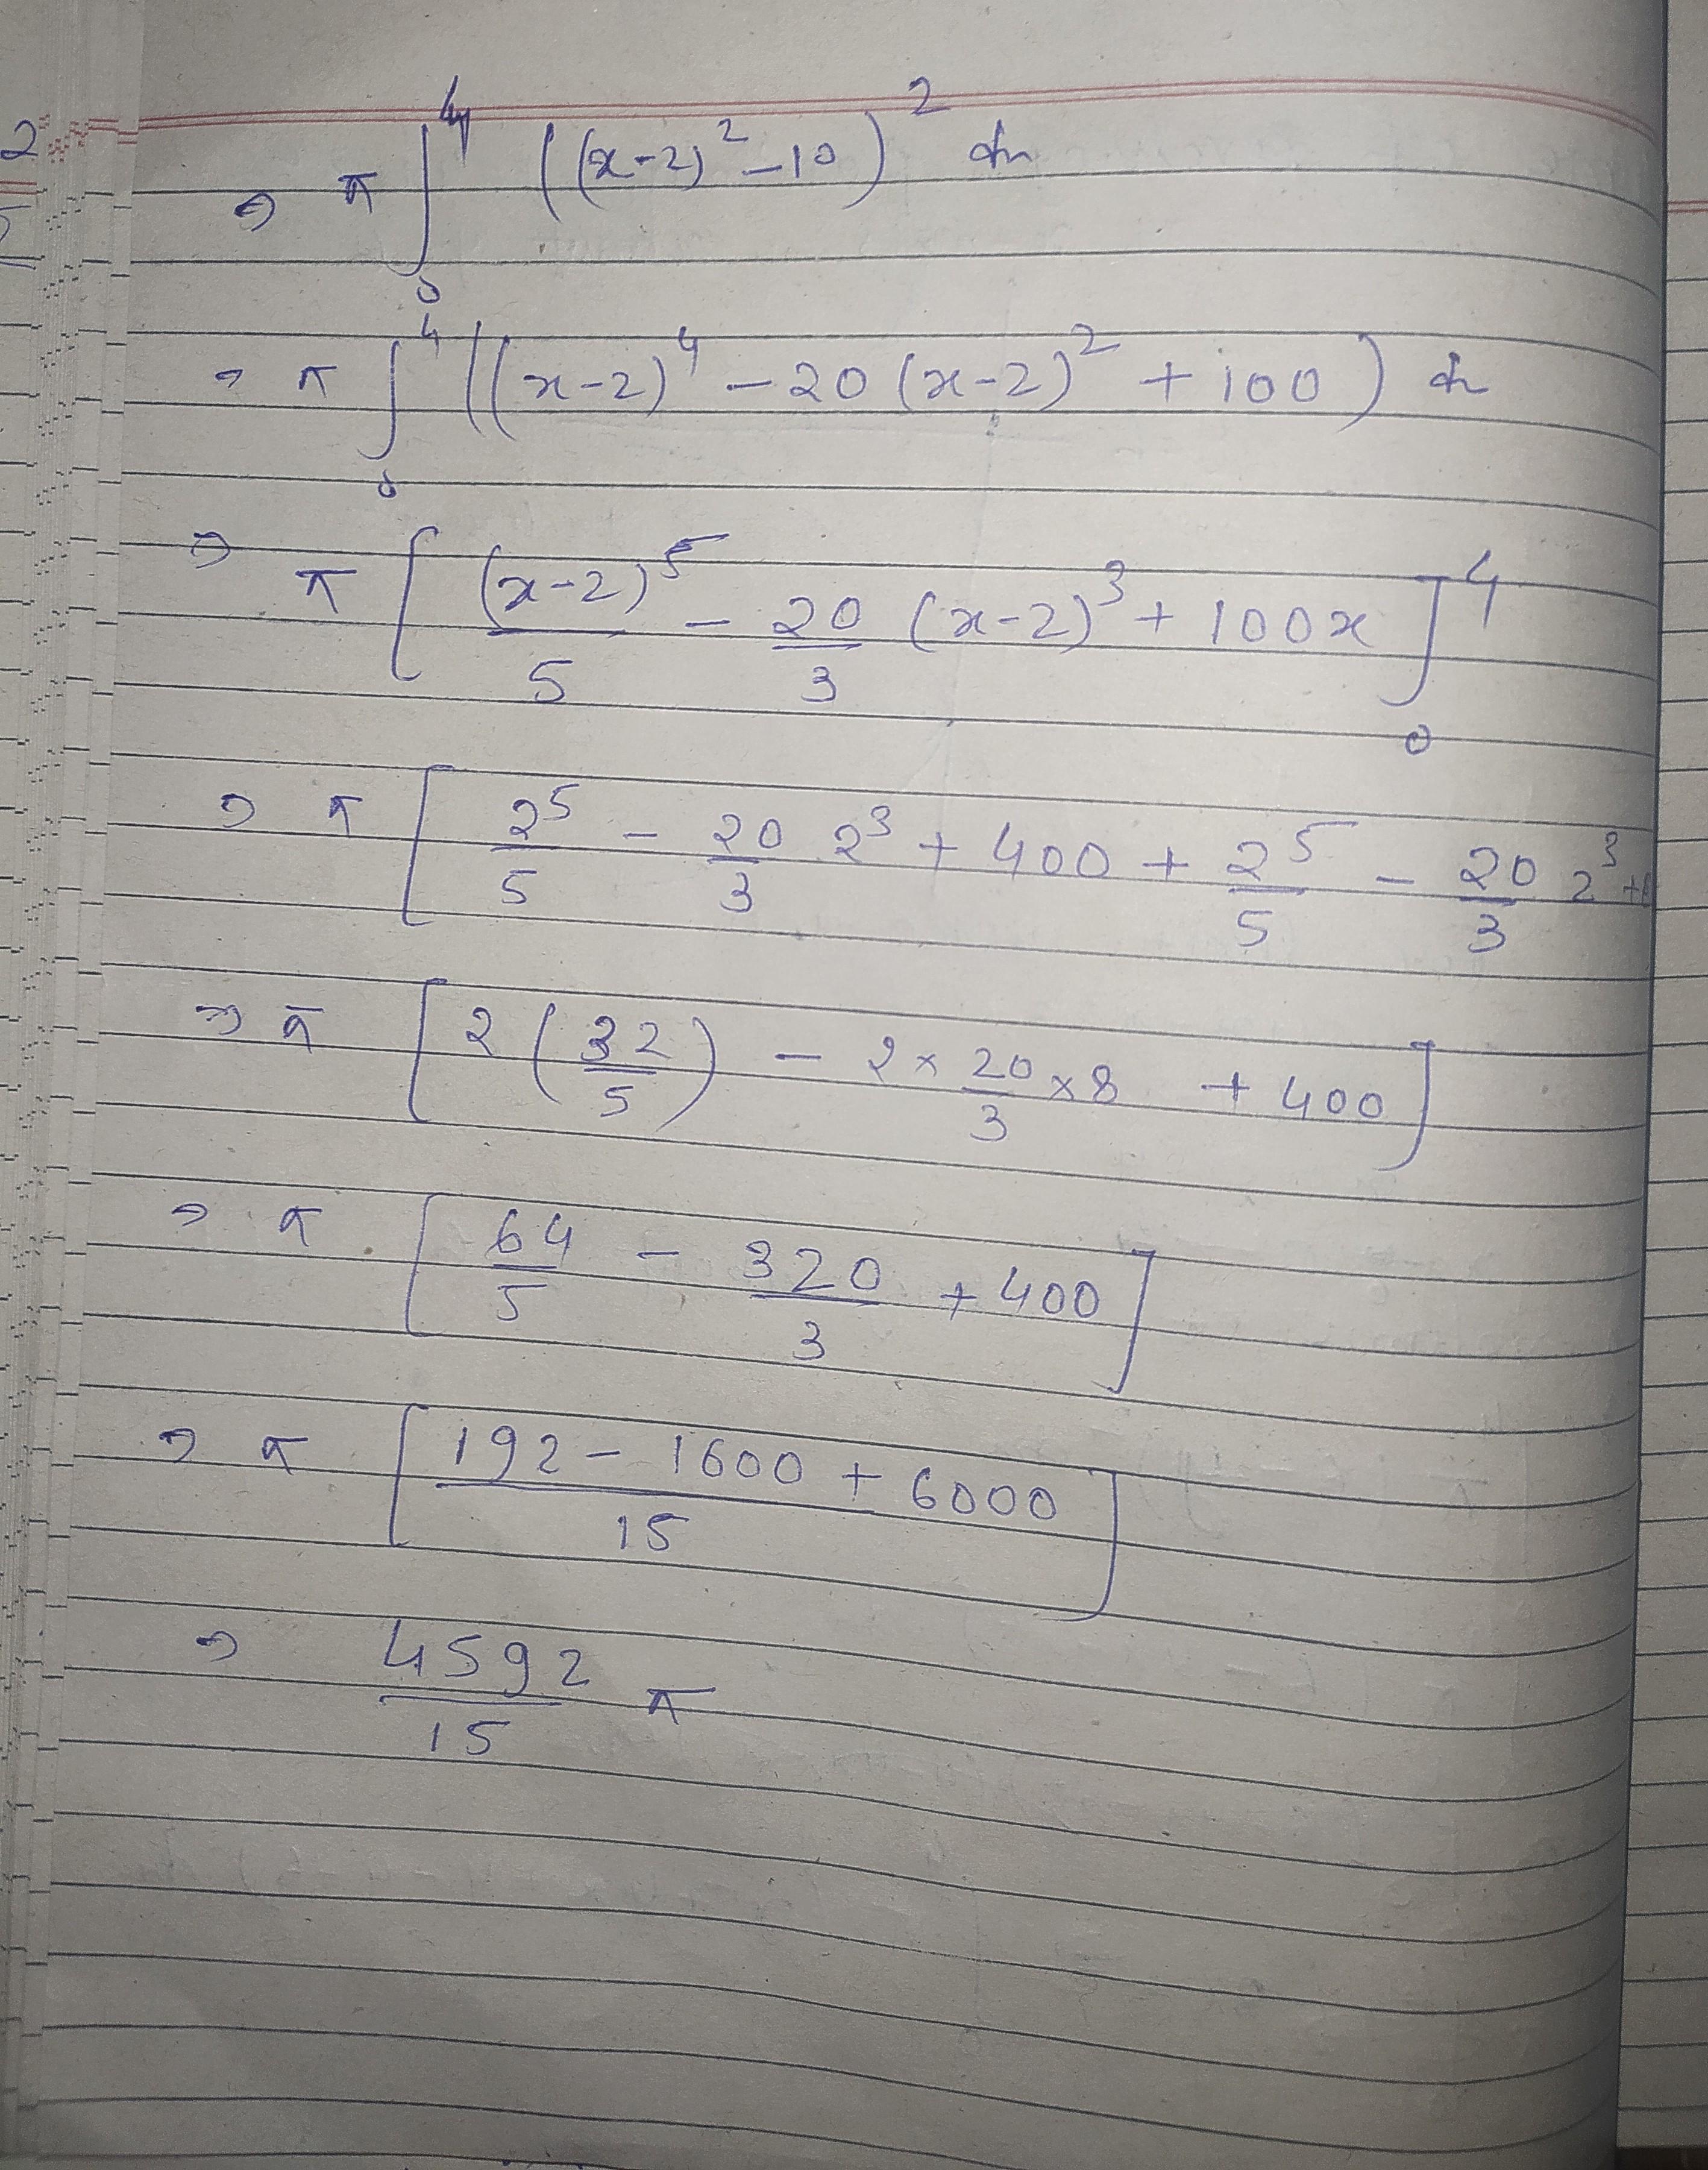 ⇒ π ∫₀⁴ ((x-2)² -10)² dx
⇒ π ∫₀⁴ ((x-2)⁴ - 20 (x-2)² + 100) dx
⇒ π [ (x-2)⁵/5 - 20/3 (x-2)³ + 100x ]₀⁴
⇒ π [ 2⁵/5 - 20/3 2³ + 400 + 2⁵/5 - 20/3 2³ +
⇒ π [ 2 (32/5) - 2 × 20/3 × 8 + 400 ]
⇒ π [ 64/5 - 320/3 + 400 ]
⇒ π [ (192 - 1600 + 6000)/15 ]
⇒ 4592/15 π